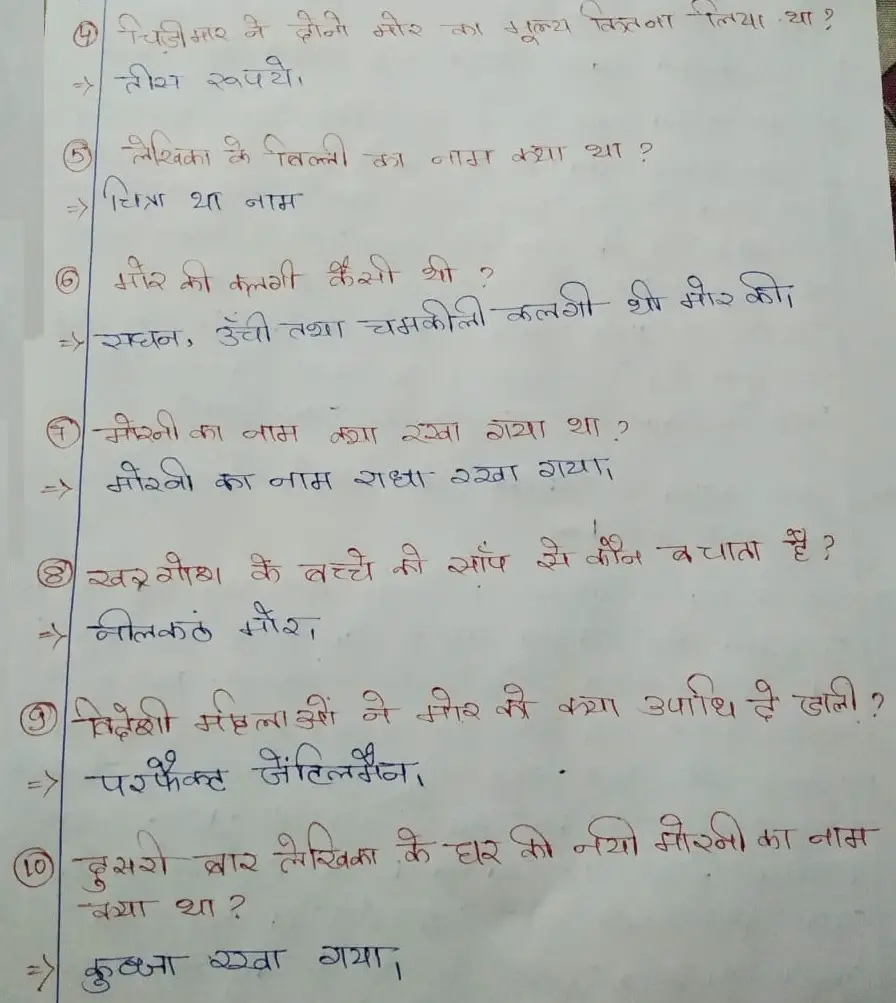 ④ चिड़ीमार ने दोनो मोर का मूल्य कितना लिया था?
=> तीस रूपये।
⑤ लेखिका के बिल्ली का नाम क्या था?
=> चित्रा था नाम
⑥ मोर की कलगी कैसी थी?
=> सघन, उँची तथा चमकीली कलगी थी मोर की।
⑦ मोरनी का नाम क्या रखा गया था?
=> मोरनी का नाम राधा रखा गया।
⑧ खरगोश के बच्चे को साँप से कौन बचाता है?
=> नीलकठं मोर।
⑨ विदेशी महिलाओं ने मोर को क्या उपाधि दे डाली?
=> परफैक्ट जेंटिलमैन।
⑩ दुसरी बार लेखिका के घर की नयी मोरनी का नाम
क्या था?
=> कुब्जा रखा गया।